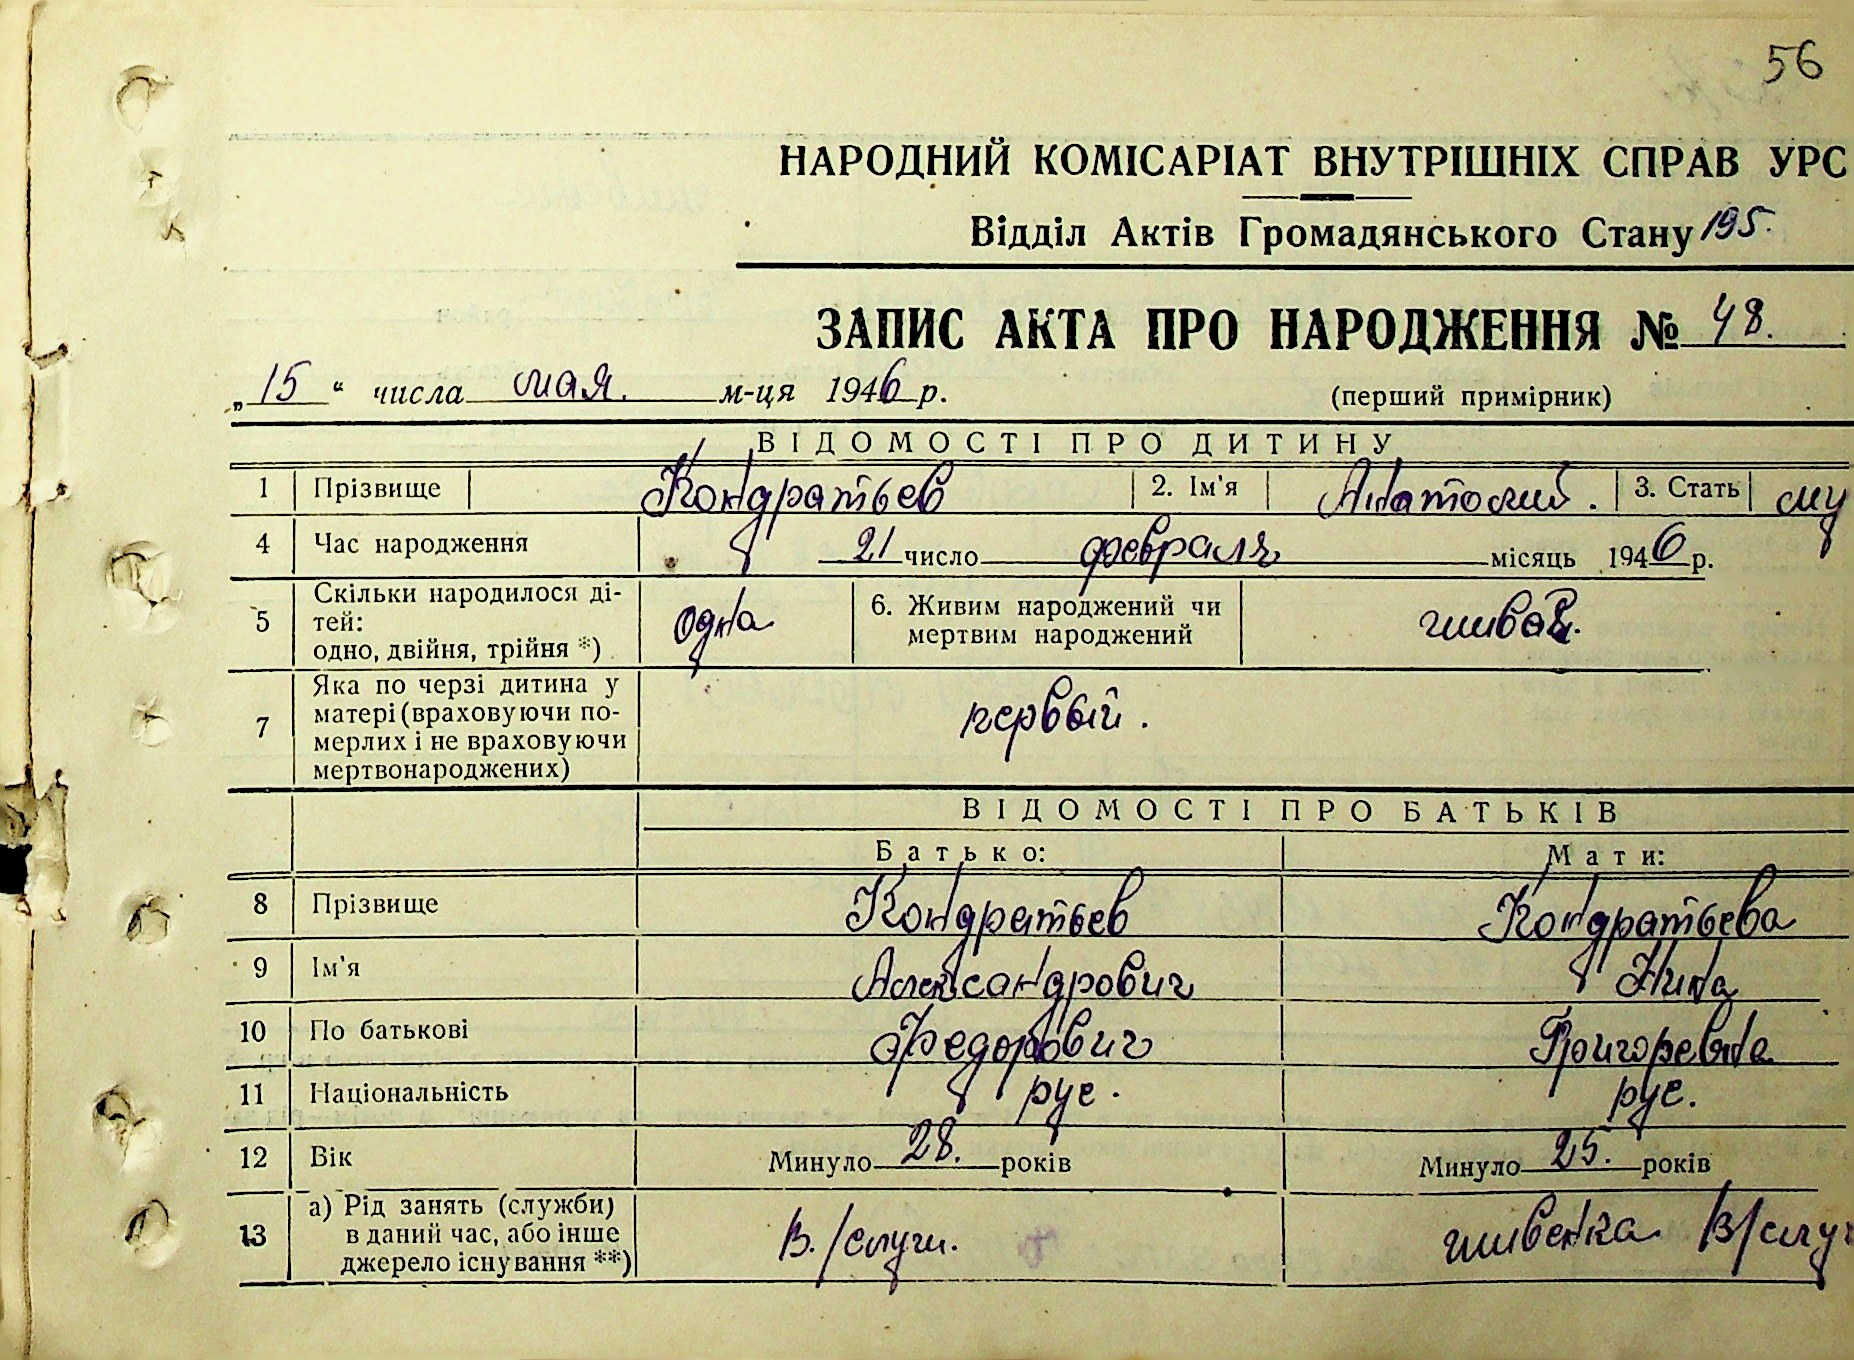 56
НАРОДНИЙ КОМІСАРІАТ ВНУТРІШНІХ СПРАВ УРС
Відділ Актів Громадянського Стану 195.
ЗАПИС АКТА ПРО НАРОДЖЕННЯ № 48.
„15“ числа мая. м-ця 1946 р. (перший примірник)
ВІДОМОСТІ ПРО ДИТИНУ
1 Прізвище Кондратьев 2. Ім'я Анатолий. 3. Стать му
4 Час народження 21 число февраля місяць 1946 р.
5 Скільки народилося ді-
тей:
одно, двійня, трійня *) одна 6. Живим народжений чи
мертвим народжений
7 Яка по черзі дитина у
матері (враховуючи по-
мерлих і не враховуючи
мертвонароджених) первый.
ВІДОМОСТІ ПРО БАТЬКІВ
Батько: Мати:
8 Прізвище Кондратьев Кондратьева
9 Ім'я Александрович Нина
10 По батькові Федорович Григоревна
11 Національність рус. рус.
12 Вік Минуло 28. років Минуло 25. років
13 а) Рід занять (служби)
в даний час, або інше
джерело існування **) В./служ. иживенка В/служ